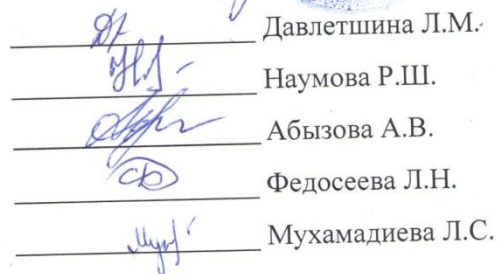 Давлетшина Л.М.
Наумова Р.Ш.
Абызова А.В.
Федосеева Л.Н.
Мухамадиева Л.С.